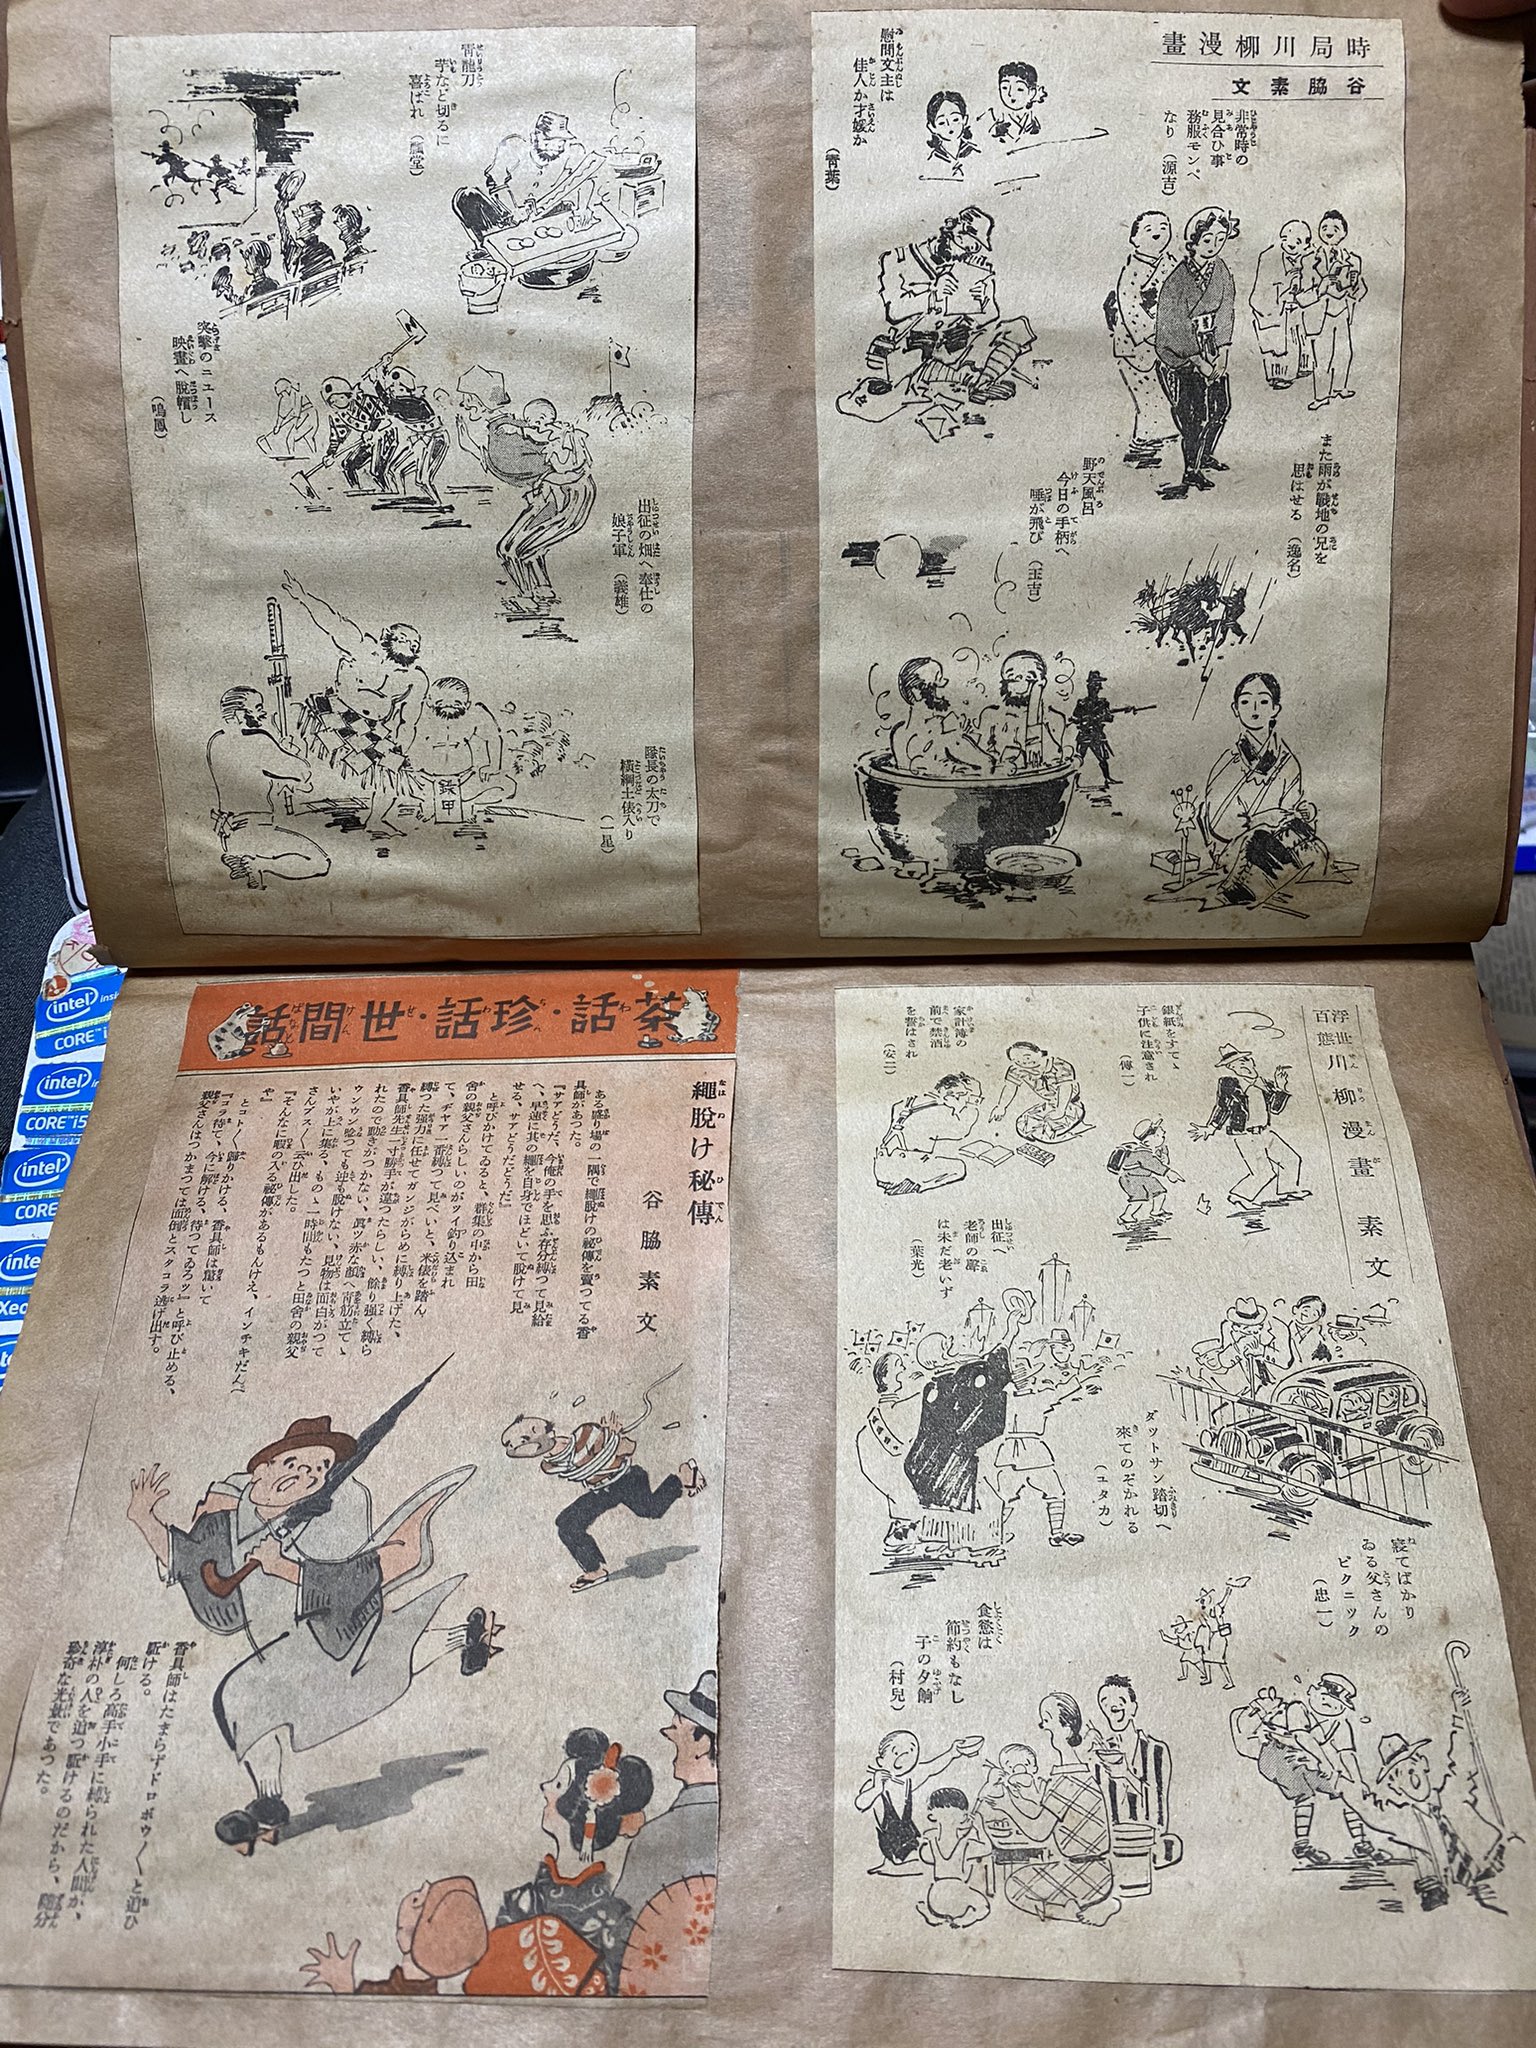 時局川柳漫畫
谷脇素文
非常時の
見合ひ事
務服モンペ
なり(源吉)
慰問文主は
佳人か才媛か
(青葉)
また雨が戰地の兄を
思はせる(逸名)
野天風呂
今日の手柄へ
唾が飛び(玉吉)
青龍刀
芋など切るに
喜ばれ
突撃のニュース
映畫へ脫帽し
(鳴鳳)
出征の畑へ奉仕の
娘子軍(義雄)
隊長の太刀で
橫綱土俵入り
(一星)
鉄甲
浮世百態
川柳漫畫 素文
銀紙をすてゝ
子供に注意され
(傳一)
家計簿の
前で禁酒
を誓はされ
(安二)
ダットサン踏切へ
來てのぞかれる
(ユタカ)
出征へ
老師の聲
は未だ老いず
(葉光)
寢てばかり
ゐる父さんの
ピクニック
(忠一)
食慾は
節約もなし
子の夕餉
(村兒)
茶話・珍話・世間話
繩脫け秘傳
谷脇素文
ある盛り場の一隅で繩脫けの祕傳を賣つてる香
具師があつた。
『サアどうだ、今俺の手を思ふ存分縛つて見給
へ、早速に其の繩を自身でほどいて脫けて見
せる、サアどうだどうだ』
と呼びかけてゐると、群集の中から田
舍の親父さんらしいのがツイ釣り込まれ
て、ヂヤア一番縛つて見べいと、米俵を踏ん
縛つた强力に任せてガンジがらめに縛り上げた、
香具師先生一寸勝手が違つたらしい、餘り强く縛ら
れたので動きがつかない、眞ツ赤な顔へ靑筋立てゝ
ウンウン唸つても逆も脫けない、見物は面白がつて
いやが上に集る、ものゝ一時間もたつと田舍の親父
さんブスブス云ひ出した。
『そんなに暇の入る秘傳があるもんけえ、インチキだんべ
や』
とコトコト歸りかける、香具師は驚いて
『コラ待て、今に解ける、待つてゐろッ』と呼び止める、
親父さんはつかまつては面倒とスタコラ逃げ出す。
香具師はたまらずドロボウドロボウと追ひ
駈ける。
何しろ高手小手に縛られた人間が、
淳朴の人を追つ駈けるのだから、隨分
珍奇な光景であつた。
intel
CORE i5
intel
CORE i5
intel
CORE
intel
Xeon